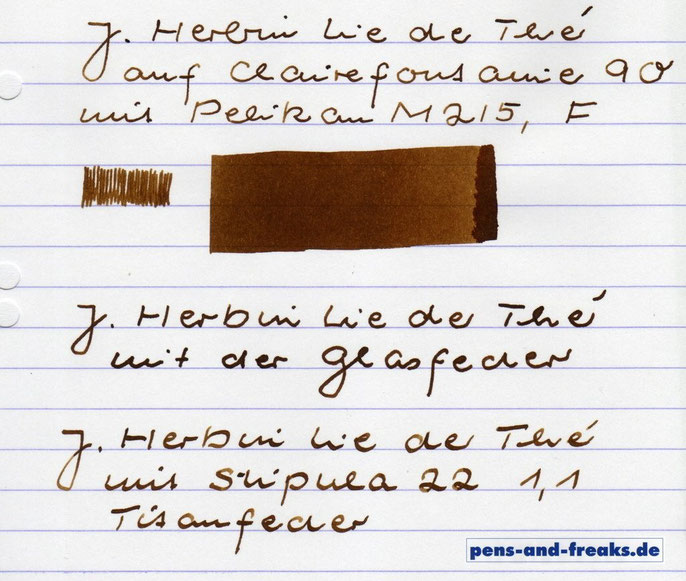 J. Herbin Lie de Thé
auf Clairefontaine 90
mit Pelikan M215, F
J. Herbin Lie de Thé
mit der Glasfeder
J. Herbin Lie de Thé
mit Stipula 22 1,1
Titanfeder
pens-and-freaks.de